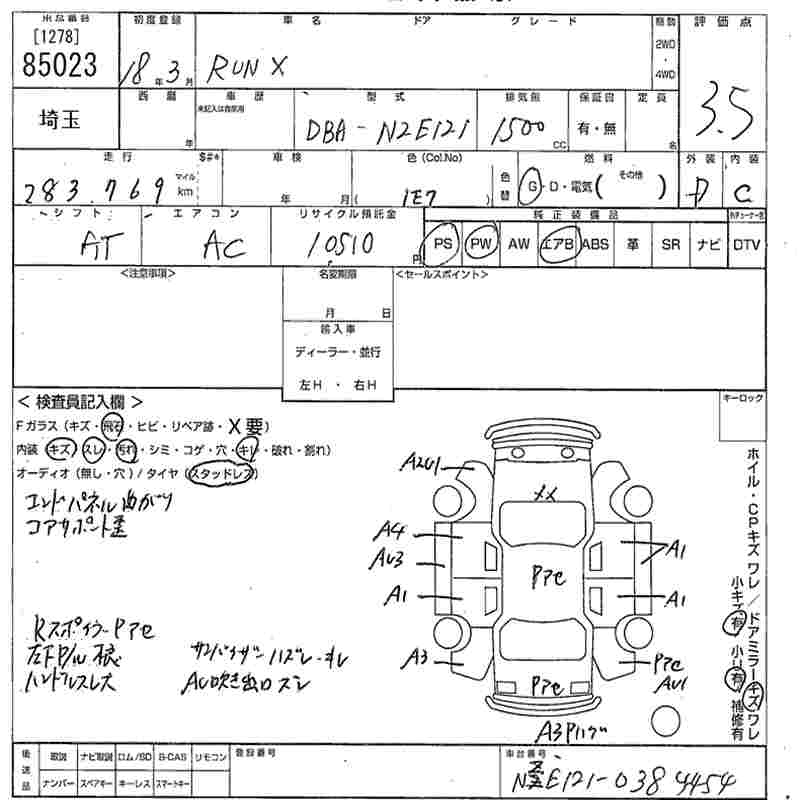 出品番号 初度登録 車名 ドア グレード 駆動 評価点
[1278]
85023
18年3月 RUN X 2WD・4WD 3.5
埼玉
西暦 年
車歴 未記入は自家用
型式 DBA-NZE121
排気量 1500 CC
保証書 有・無
定員 名
走行 283.769 マイル km
$#*
車検 年 月
色(Col.No) ( 1E7 )
色替
燃料 G・D・電気( その他 )
外装 D
内装 C
シフト AT
エアコン AC
リサイクル預託金 10510 円
純正装備品
PS PW AW エアB ABS 革 SR ナビ DTV
<注意事項> 名変期限 <セールスポイント>
月 日
輸入車
ディーラー・並行
左H・右H
<検査員記入欄> キーロック
Fガラス(キズ・飛石・ヒビ・リペア跡・X要)
内装(キズ・スレ・汚れ・シミ・コゲ・穴・キレ・破れ・割れ)
オーディオ(無し・穴)/タイヤ(スタッドレス)
エンドパネル曲がり
コアサポート歪
A2U1
XX
A4
AU3
A1
A1
Pアセ
A1
A3
Pアセ
AU1
Pアセ
A3Pハゲ
Rスポイラー Pアセ
サンバイザー ハズレ・キレ
ハンドルスレ大
AC吹き出口スレ
ホイル・CPキズ ワレ/ドアミラーキズ ワレ
小キズ有 小U有 補修有
後送品 取説 ナビ取説 ロム/SD B-CAS リモコン
ナンバー スペアキー キーレス スマートキー
登録番号
車台番号
NZE121-0384454